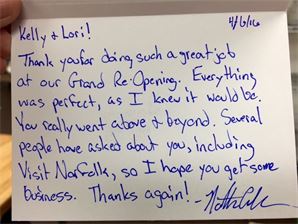 Kelly & Lori!
4/6/16
Thank you for doing such a great job
at our Grand Re-Opening. Everything
was perfect, as I knew it would be.
You really went above & beyond. Several
people have asked about you, including
Visit Norfolk, so I hope you get some
business. Thanks again!